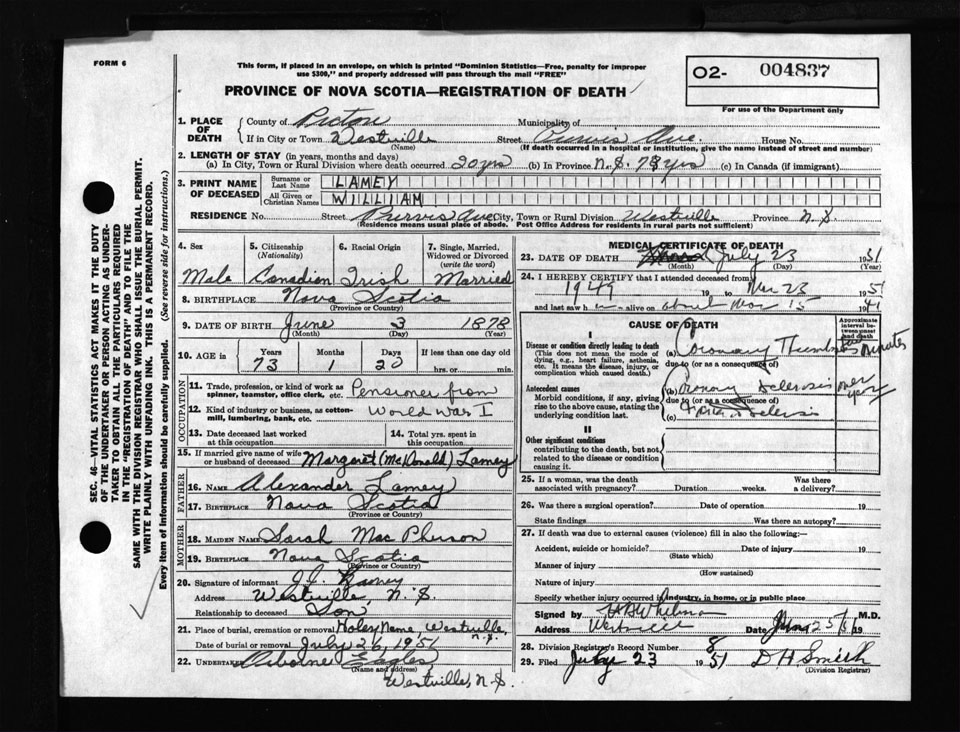 FORM 6
This form, if placed in an envelope, on which is printed "Dominion Statistics—Free, penalty for improper
use $300," and properly addressed will pass through the mail "FREE"
PROVINCE OF NOVA SCOTIA—REGISTRATION OF DEATH
O2- 004837
For use of the Department only
SEC. 46—VITAL STATISTICS ACT MAKES IT THE DUTY
OF THE UNDERTAKER OR PERSON ACTING AS UNDER-
TAKER TO OBTAIN ALL THE PARTICULARS REQUIRED
IN THE "REGISTRATION OF DEATH" AND TO FILE THE
SAME WITH THE DIVISION REGISTRAR WHO SHALL ISSUE THE BURIAL PERMIT.
WRITE PLAINLY WITH UNFADING INK. THIS IS A PERMANENT RECORD.
Every item of information should be carefully supplied. (See reverse side for instructions.)
1. PLACE OF DEATH County of Pictou Municipality of
If in City or Town Westville Street Purvis Ave. House No.
(Name) (If death occurred in a hospital or institution, give the name instead of street and number)
2. LENGTH OF STAY (in years, months and days)
(a) In City, Town or Rural Division where death occurred 20 yrs (b) In Province N.S. 73 yrs (c) In Canada (if immigrant)
3. PRINT NAME OF DECEASED Surname or Last Name LAMEY
All Given or Christian Names WILLIAM
RESIDENCE No. Street Purvis Ave City, Town or Rural Division Westville Province N.S.
(Residence means usual place of abode. Post Office Address for residents in rural parts not sufficient)
4. Sex 5. Citizenship (Nationality) 6. Racial Origin 7. Single, Married, Widowed or Divorced (write the word)
Male Canadian Irish Married
8. BIRTHPLACE Nova Scotia
(Province or Country)
9. DATE OF BIRTH June 3 1878
(Month) (Day) (Year)
10. AGE in Years Months Days If less than one day old
73 1 20 hrs. or min.
OCCUPATION
11. Trade, profession, or kind of work as spinner, teamster, office clerk, etc. Pensioner from
12. Kind of industry or business, as cotton-mill, lumbering, bank, etc. World War I
13. Date deceased last worked at this occupation 14. Total yrs. spent in this occupation
15. If married give name of wife or husband of deceased Margaret (McDonald) Lamey
FATHER
16. NAME Alexander Lamey
17. BIRTHPLACE Nova Scotia
(Province or Country)
MOTHER
18. MAIDEN NAME Sarah Mac Pherson
19. BIRTHPLACE Nova Scotia
(Province or Country)
20. Signature of informant
Address Westville, N.S.
Relationship to deceased Son
21. Place of burial, cremation or removal Holey Name, Westville, N.S.
Date of burial or removal July 26, 1951
22. Undertaker Osborne Eagles
(Name and address)
Westville, N.S.
MEDICAL CERTIFICATE OF DEATH
23. DATE OF DEATH July 23 1951
(Month) (Day)
24. I HEREBY CERTIFY that I attended deceased from
1949 19 to 23 1951
and last saw h alive on 15 19
CAUSE OF DEATH
Approximate interval between onset and death
I
Disease or condition directly leading to death
(This does not mean the mode of dying, e.g., heart failure, asthenia, etc. It means the disease, injury, or complication which caused death.)
(a) Coronary minutes
due to (or as a consequence of)
Antecedent causes
Morbid conditions, if any, giving rise to the above cause, stating the underlying condition last.
(b) Sclerosis
due to (or as a consequence of)
(c)
II
Other significant conditions
contributing to the death, but not related to the disease or condition causing it.
25. If a woman, was the death associated with pregnancy? Duration weeks. Was there a delivery?
26. Was there a surgical operation? Date of operation 19
State findings Was there an autopsy?
27. If death was due to external causes (violence) fill in also the following:—
Accident, suicide or homicide? Date of injury 19
(State which)
Manner of injury
(How sustained)
Nature of injury
Specify whether injury occurred in industry, in home, or in public place
Signed by M.D.
Address Westville Date 19
28. Division Registrar's Record Number 8
29. Filed July 23 1951 D H Smith
(Division Registrar)